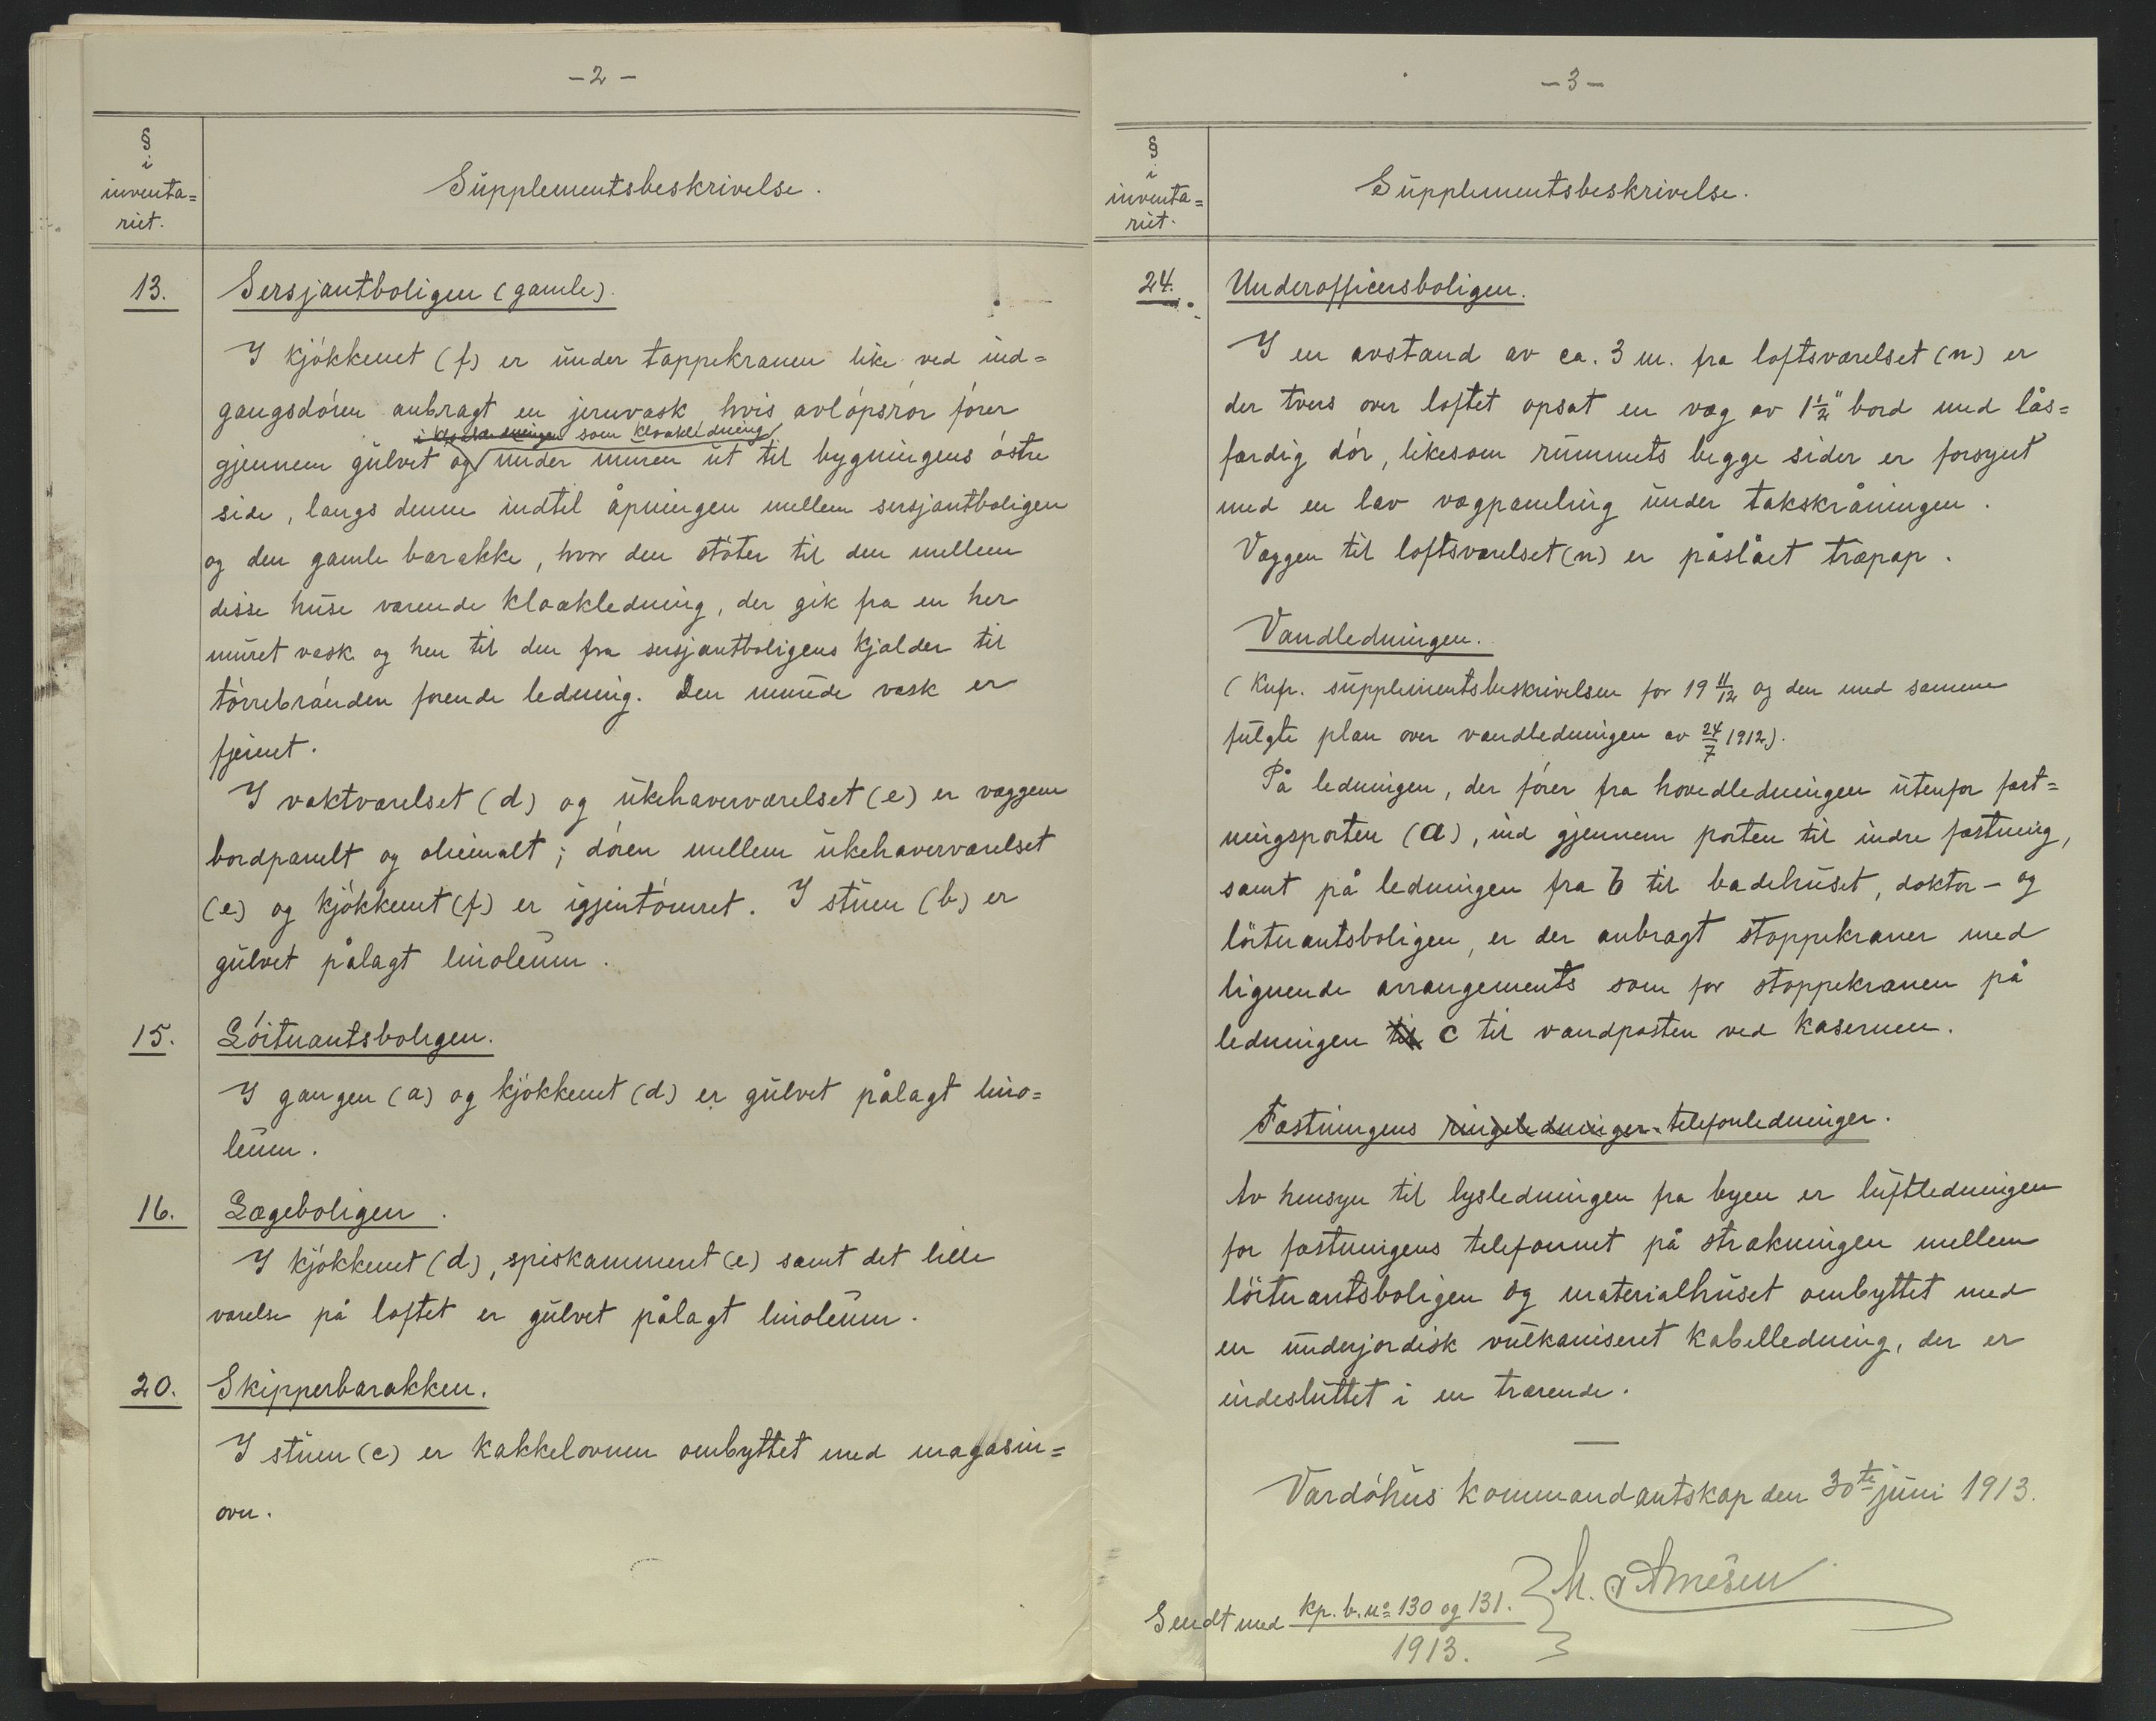 - 2 -
§
i
inventa=
riet.
Supplementsbeskrivelse.
13.
Sersjantboligen (gamle).
I kjøkkenet (f) er under tappekranen like ved ind=
gangsdøren anbragt en jernvask, hvis avløpsrør fører
som kloakledning
gjennem gulvet og under muren ut til bygningens østre
side, langs denne indtil åpningen mellem sersjantboligen
og den gamle barakke, hvor den støter til den mellem
disse huse værende kloakledning, der gik fra en her
muret vask og hen til den fra sersjantboligens kjælder til
tørrebrønden førende ledning. Den murede vask er
fjernet.
I vaktværelset (d) og ukehaverværelset (e) er væggene
bordpanelt og oliemalt; døren mellem ukehaverværelset
(e) og kjøkkenet (f) er igjentømret. I stuen (b) er
gulvet pålagt linoleum.
15.
Løitnantsboligen.
I gangen (a) og kjøkkenet (d) er gulvet pålagt lino=
leum.
16.
Lægeboligen.
I kjøkkenet (d), spiskammeret (e) samt det lille
værelse på loftet er gulvet pålagt linoleum.
20.
Skipperbarakken.
I stuen (c) er kakkelovnen ombyttet med magasin=
ovn.
- 3 -
§
i
inventa=
riet.
Supplementsbeskrivelse.
24.
Underofficersboligen.
I en avstand av ca. 3 m. fra loftsværelset (n) er
der tvers over loftet opsat en væg av 1½" bord med lås=
færdig dør, likesom rummets begge sider er forsynt
med en lav vægpaneling under takskråningen.
Væggen til loftsværelset (n) er påslået træpap.
Vandledningen.
(Knfr. supplementsbeskrivelsen for 19 11/12 og den med samme
fulgte plan over vandledningen av 24/7 1912).
På ledningen, der fører fra hovedledningen utenfor fæst=
ningsporten (a), ind gjennem porten til indre fæstning,
samt på ledningen fra b til badehuset, doktor- og
løitnantsboligen, er der anbragt stoppekraner med
lignende arrangements som for stoppekranen på
ledningen til c til vandposten ved kasernen.
Fæstningens ringeledninger. telefonledninger.
Av hensyn til lysledningen fra byen er luftledningen
for fæstningens telefonnet på strækningen mellem
løitnantsboligen og materialhuset ombyttet med
en underjordisk vulkaniseret kabelledning, der er
indesluttet i en trærende.
Vardøhus kommandantskap den 30te juni 1913.
Sendt med kp. b. no 130 og 131.
1913.